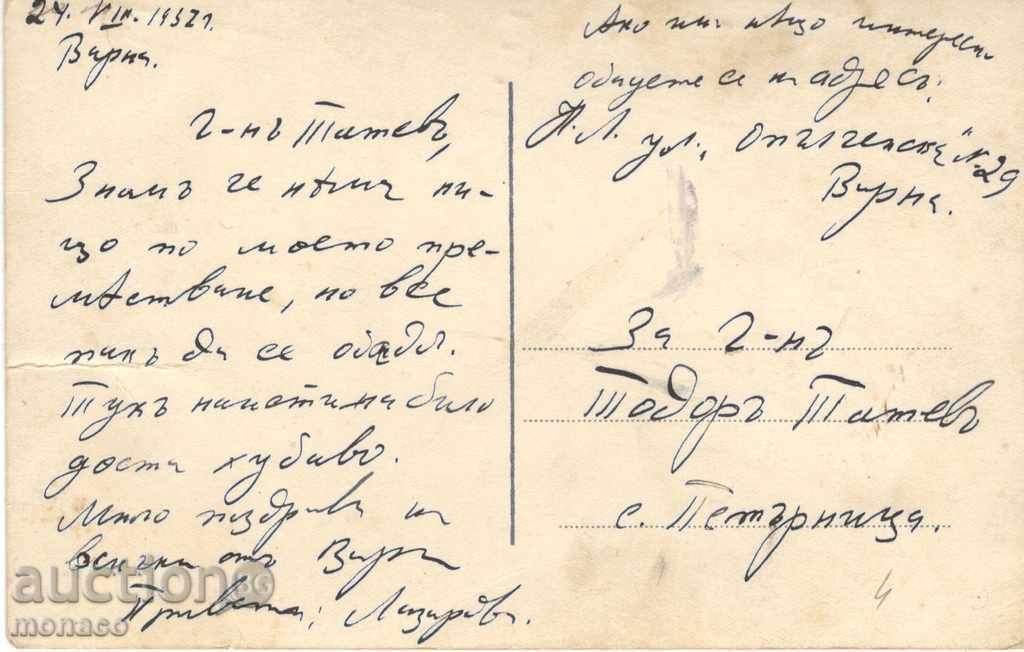 24. VIII. 1932 г.
Варна.
Г-нъ Татевъ,
Знамъ че нѣма ни-
що по моето пре-
мѣстване, но все
пакъ да се обади.
Тукъ наистина било
доста хубаво.
Много поздрави на
всички отъ Варна
Привета: Лазаровъ.
Ако има нѣщо
обадете се на адресъ:
Н. Л. ул. „Опълченска" № 29
Варна.
За Г-нъ
Тодоръ Татевъ
с. Петърница.
4
auction BG
monaco